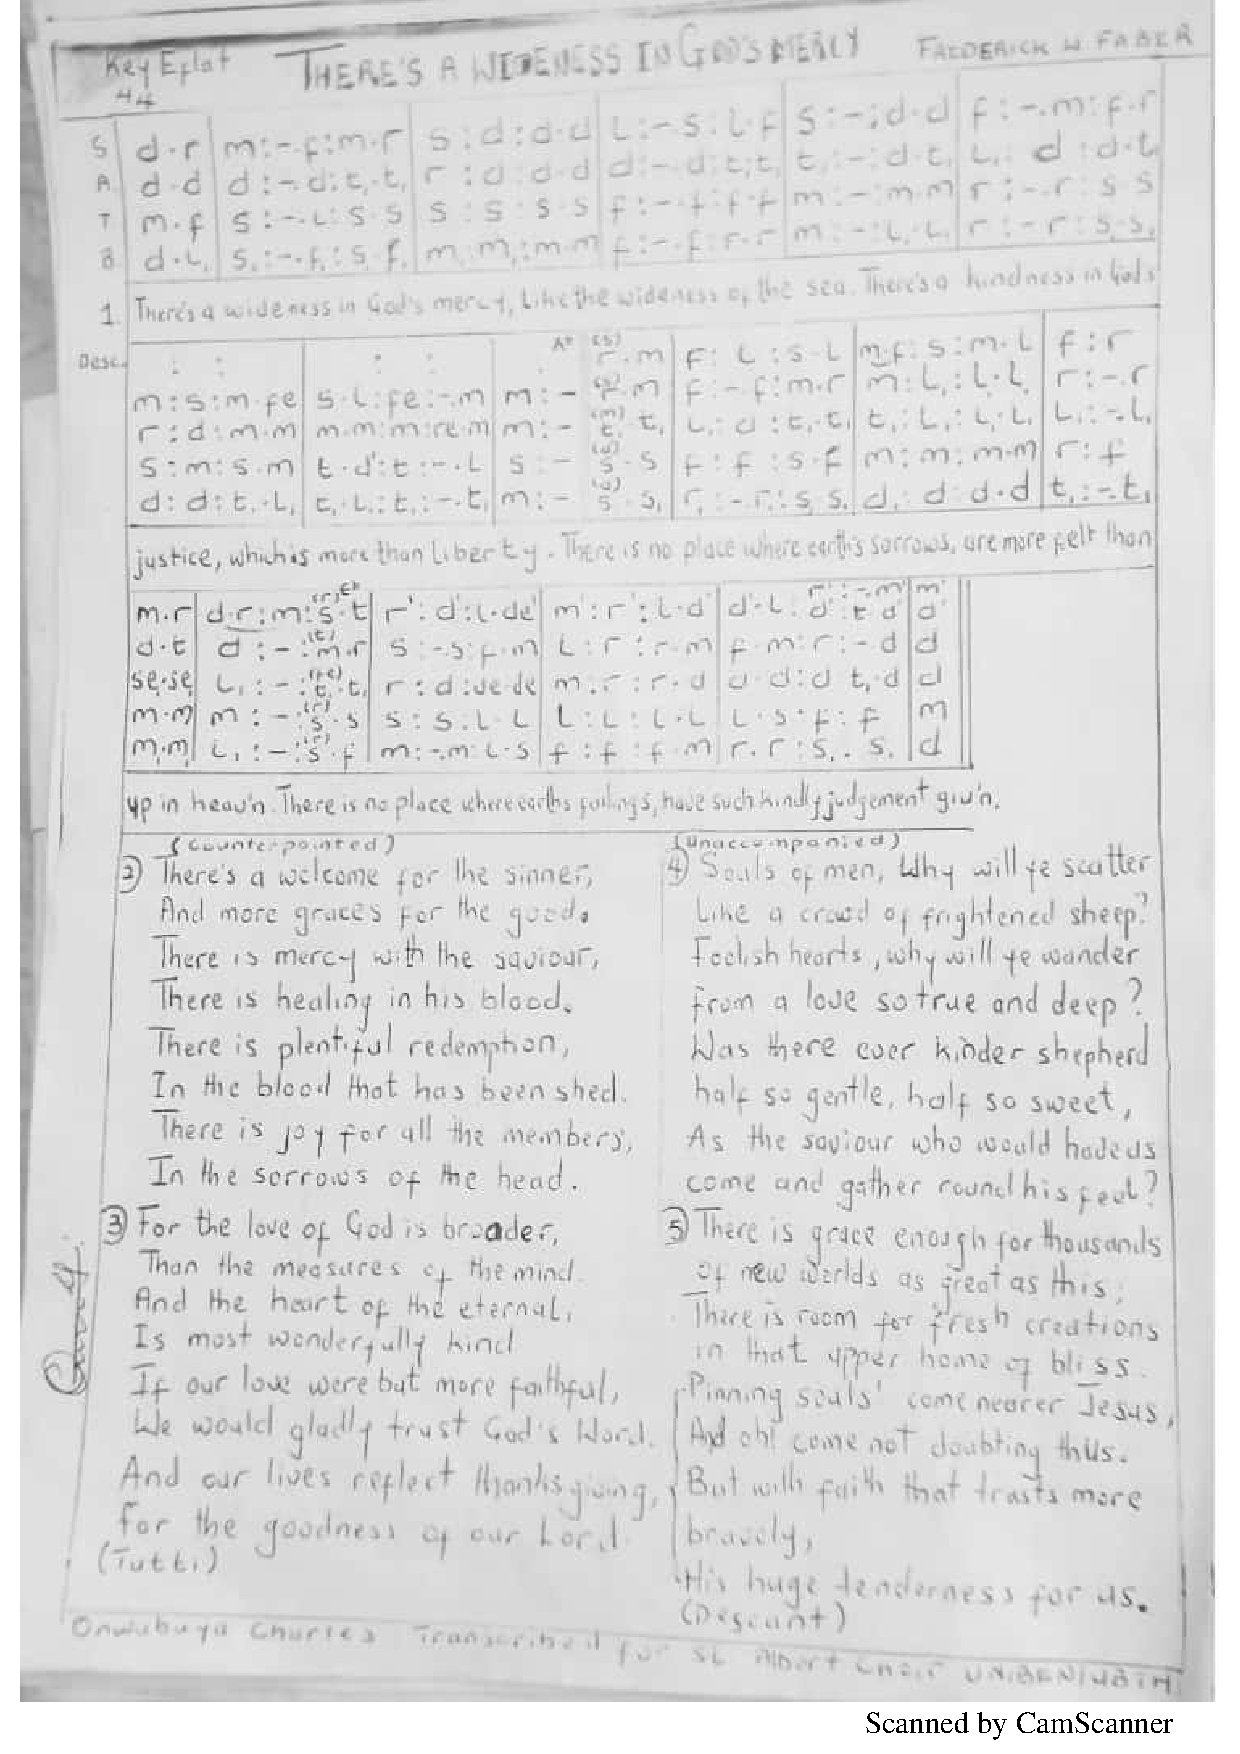 Key Eflat
44
THERE'S A WIDENESS IN GOD'S MERCY
FREDERICK W. FABER
S d.r m:-.f:m.r s:d:d.d L:-s:L.f s:-:d.d f:-.m:f.r
A d.d d:-.d:t,.t, r:d:d.d d:-.d:t,t, t,:-:d.t, L,: d:d.t
T m.f s:-.L:s.s s:s:s.s f:-.f:f.f m:-:m.m r:-.r:s.s
B d.L, s,:-.f,:s,.f, m,:m,:m.m f:-.f:r.r m:-:L,.L, r:-r:s,.s,
1. There's a wideness in God's mercy, Like the wideness of the sea. There's a kindness in God's
Desc. : : : : r.m F: L:s.L m.f:s:m.L f:r
m:s:m.fe s.L:fe:-.m m:- m f:-.f:m.r m:L,:L.L, r:-.r
r:d:m.m m.m:m:re.m m:- t,.t, L,:d:t,.t, t,:L,:L,.L, L,:-.L,
s:m:s.m t.d':t:-.L s:- s.s f:f:s.f m:m:m.m r:f
d:d:t,.L, t,.L,:t,:-.t, m:- s.s, r,:-.r,:s,s, d,:d:d.d t,:-.t,
justice, which is more than Liberty. There is no place where earth's sorrows, are more felt than
m.r d.r:m:s.t r':d':l.de' m':r':L.d' d'.L: m'
d.t d:-:m.r s:-.s:f.m L:r:r.m f.m:r:-d d
se,.se, L,:-:t,.t, r:d:de.de m:r:r.d d.d:d t,.d d
m.m m:-:s.s s:s:L.L L:L:L.L L.s:f:f m
m,.m, L,:-:s.f m:-.m:L.s f:f:f.m r.r:s,.s, d
up in heav'n. There is no place where earths failings, have such kindly judgement giv'n.
(Counterpointed)
2) There's a welcome for the sinner,
And more graces for the good.
There is mercy with the saviour,
There is healing in his blood.
There is plentiful redemption,
In the blood that has been shed.
There is joy for all the members,
In the sorrows of the head.
3) For the love of God is broader,
Than the measures of the mind
And the heart of the eternal,
Is most wonderfully kind
If our love were but more faithful,
We would gladly trust God's Word.
And our lives reflect thanksgiving,
For the goodness of our Lord.
(Tutti)
(Unaccompanied)
4) Souls of men, Why will ye scatter
Like a crowd of frightened sheep?
Foolish hearts, why will ye wander
from a love so true and deep?
Was there ever kinder shepherd
half so gentle, half so sweet,
As the saviour who would haveus
come and gather round his feet?
5) There is grace enough for thousands
of new worlds as great as this;
There is room for fresh creations
in that upper home of bliss.
Pinning souls' come nearer Jesus,
And oh! come not doubting thus.
But with faith that trusts more
bravely,
His huge tenderness for us.
(Descant)
Onwubuya Charles Transcribed for St Albert Choir UNIBEN/UBTH
Scanned by CamScanner